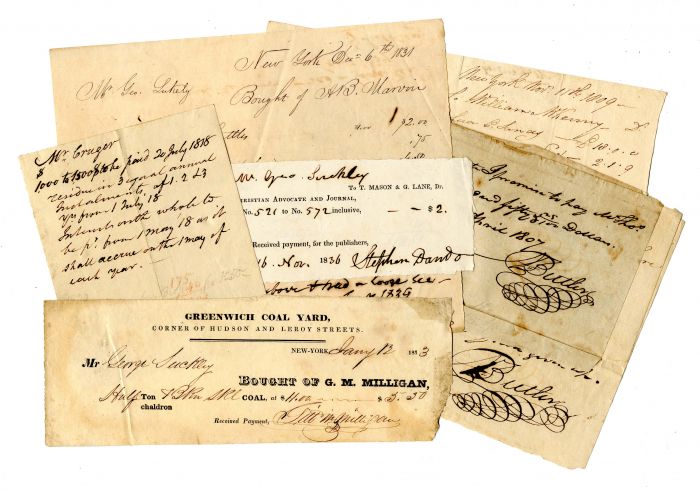 New York Dec 6th 1831
Mr Geo. Suckely
Bought of A.B. Marvin
Kettles
12.00
.75
New York Nov 11th 1809
William
2.1.9
Mr Cruger
$
1000 to 1500 $ to be paid 20 July 1818
residue in 3 equal annual
instalments of 1. 2 & 3
yrs from 1 July 18
Interest on the whole to
be pd from 1 May 18 as it
shall accrue on the 1 may of
each year.
Mr. Geo Suckley
To T. MASON & G. LANE, Dr.
RISTIAN ADVOCATE AND JOURNAL,
No. 521 to No. 572 inclusive, - - $2.
Received payment, for the publishers,
16. Nov. 1836 Stephen Dando
above & had a
1839
I promise to pay
and fifty six Dollars.
April 1807
Butler
Butler
GREENWICH COAL YARD,
CORNER OF HUDSON AND LEROY STREETS.
NEW-YORK, Jany 12 1833
Mr George Suckley
BOUGHT OF G. M. MILLIGAN,
Half Ton
chaldron
COAL, at $
$
Received Payment,
Milligan